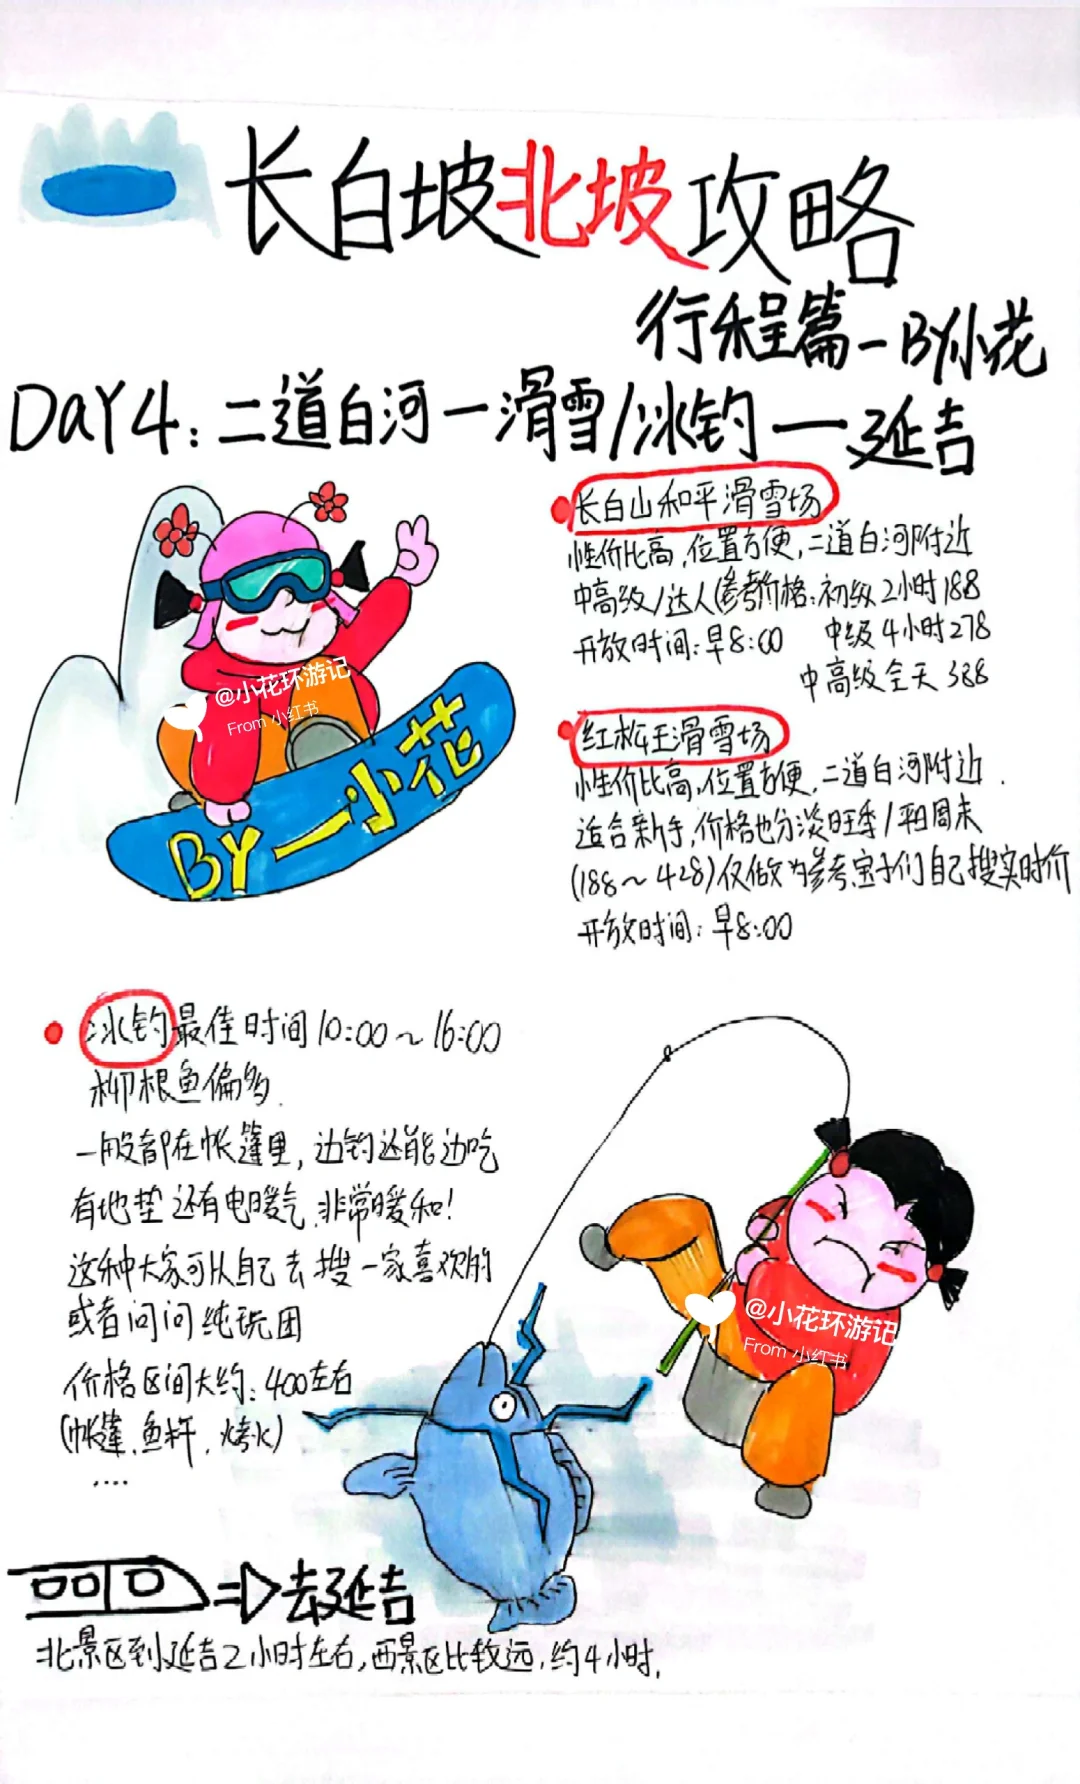 长白坡北坡攻略
行程篇-BY小花
DaY4:二道白河一滑雪/冰钓一延吉
长白山和平滑雪场
性价比高,位置方便,二道白河附近
中高级/达人(参考价格:初级2小时188
开放时间:早8:00 中级4小时278
中高级全天388
红松王滑雪场
性价比高,位置方便,二道白河附近.
适合新手,价格也分淡旺季/平日周末
(188~428)仅做为参考,宝子们自己搜实时价
开放时间:早8:00
@小花环游记
From 小红书
BY一小花
冰钓最佳时间10:00~16:00
柳根鱼偏多.
一般都在帐篷里,边钓还能边吃
有地垫还有电暖气.非常暖和!
这种大家可以自己去搜一家喜欢的
或者问问纯玩团
价格区间大约:400左右
(帐篷.鱼杆.烤火)
....
@小花环游记
From 小红书
去延吉
北景区到延吉2小时左右,西景区比较远.约4小时.